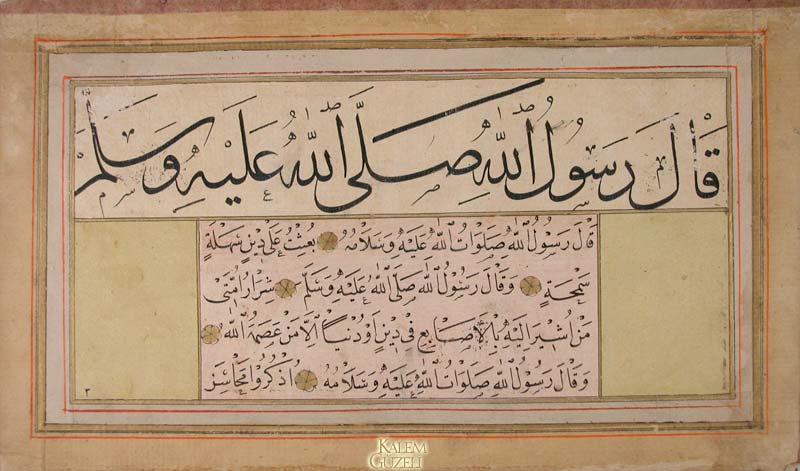 قَالَ رَسُولُ اللهِ صَلَّى اللهُ عَلَيْهِ وَسَلَّمَ
قَالَ رَسُولُ اللهِ صَلَوَاتُ اللهِ عَلَيْهِ وَسَلَامُهُ بُعِثْتُ عَلَى دِينٍ سَهْلَةٍ
سَمْحَةٍ وَقَالَ رَسُولُ اللهِ صَلَّى اللهُ عَلَيْهِ وَسَلَّمَ شِرَارُ اُمَّتِى
مَنْ اُشِيرَ اِلَيْهِ بِالْاَصَابِعِ فِى دِينٍ اَوْ دُنْيَا اِلَّا مَنْ عَصَمَهُ اللهُ
وَقَالَ رَسُولُ اللهِ صَلَوَاتُ اللهِ عَلَيْهِ وَسَلَامُهُ اُذْكُرُوا مَحَاسِنَ
٣
KALEM
GÜZELİ